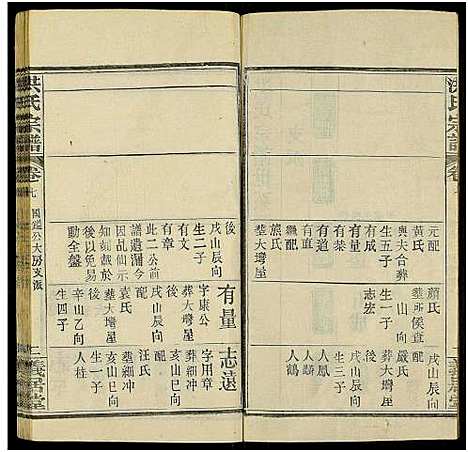 洪氏宗譜
元配
黃氏
與夫合葬
生五子
有成
有榮
有道
有直
繼配
熊氏
葬大塆屋
顏氏
山向
生一子
志宏
戌山辰向
配
嚴氏
葬大塆屋
後
戌山辰向
生三子
人鳳
人麟
人鶴
後
戌山辰向
生二子
有文
有章
此二公前
譜遺漏今
因乩仙示
知刻載於
後以免易
動全盤
有量
字康公
葬大塆屋
後
戌山辰向
配
袁氏
葬大塆屋
後
辛山乙向
生四子
志遠
字用章
葬細冲
亥山巳向
配
汪氏
葬細冲
亥山巳向
生一子
人柱
洪氏宗譜
卷七
公大房支派
義居堂